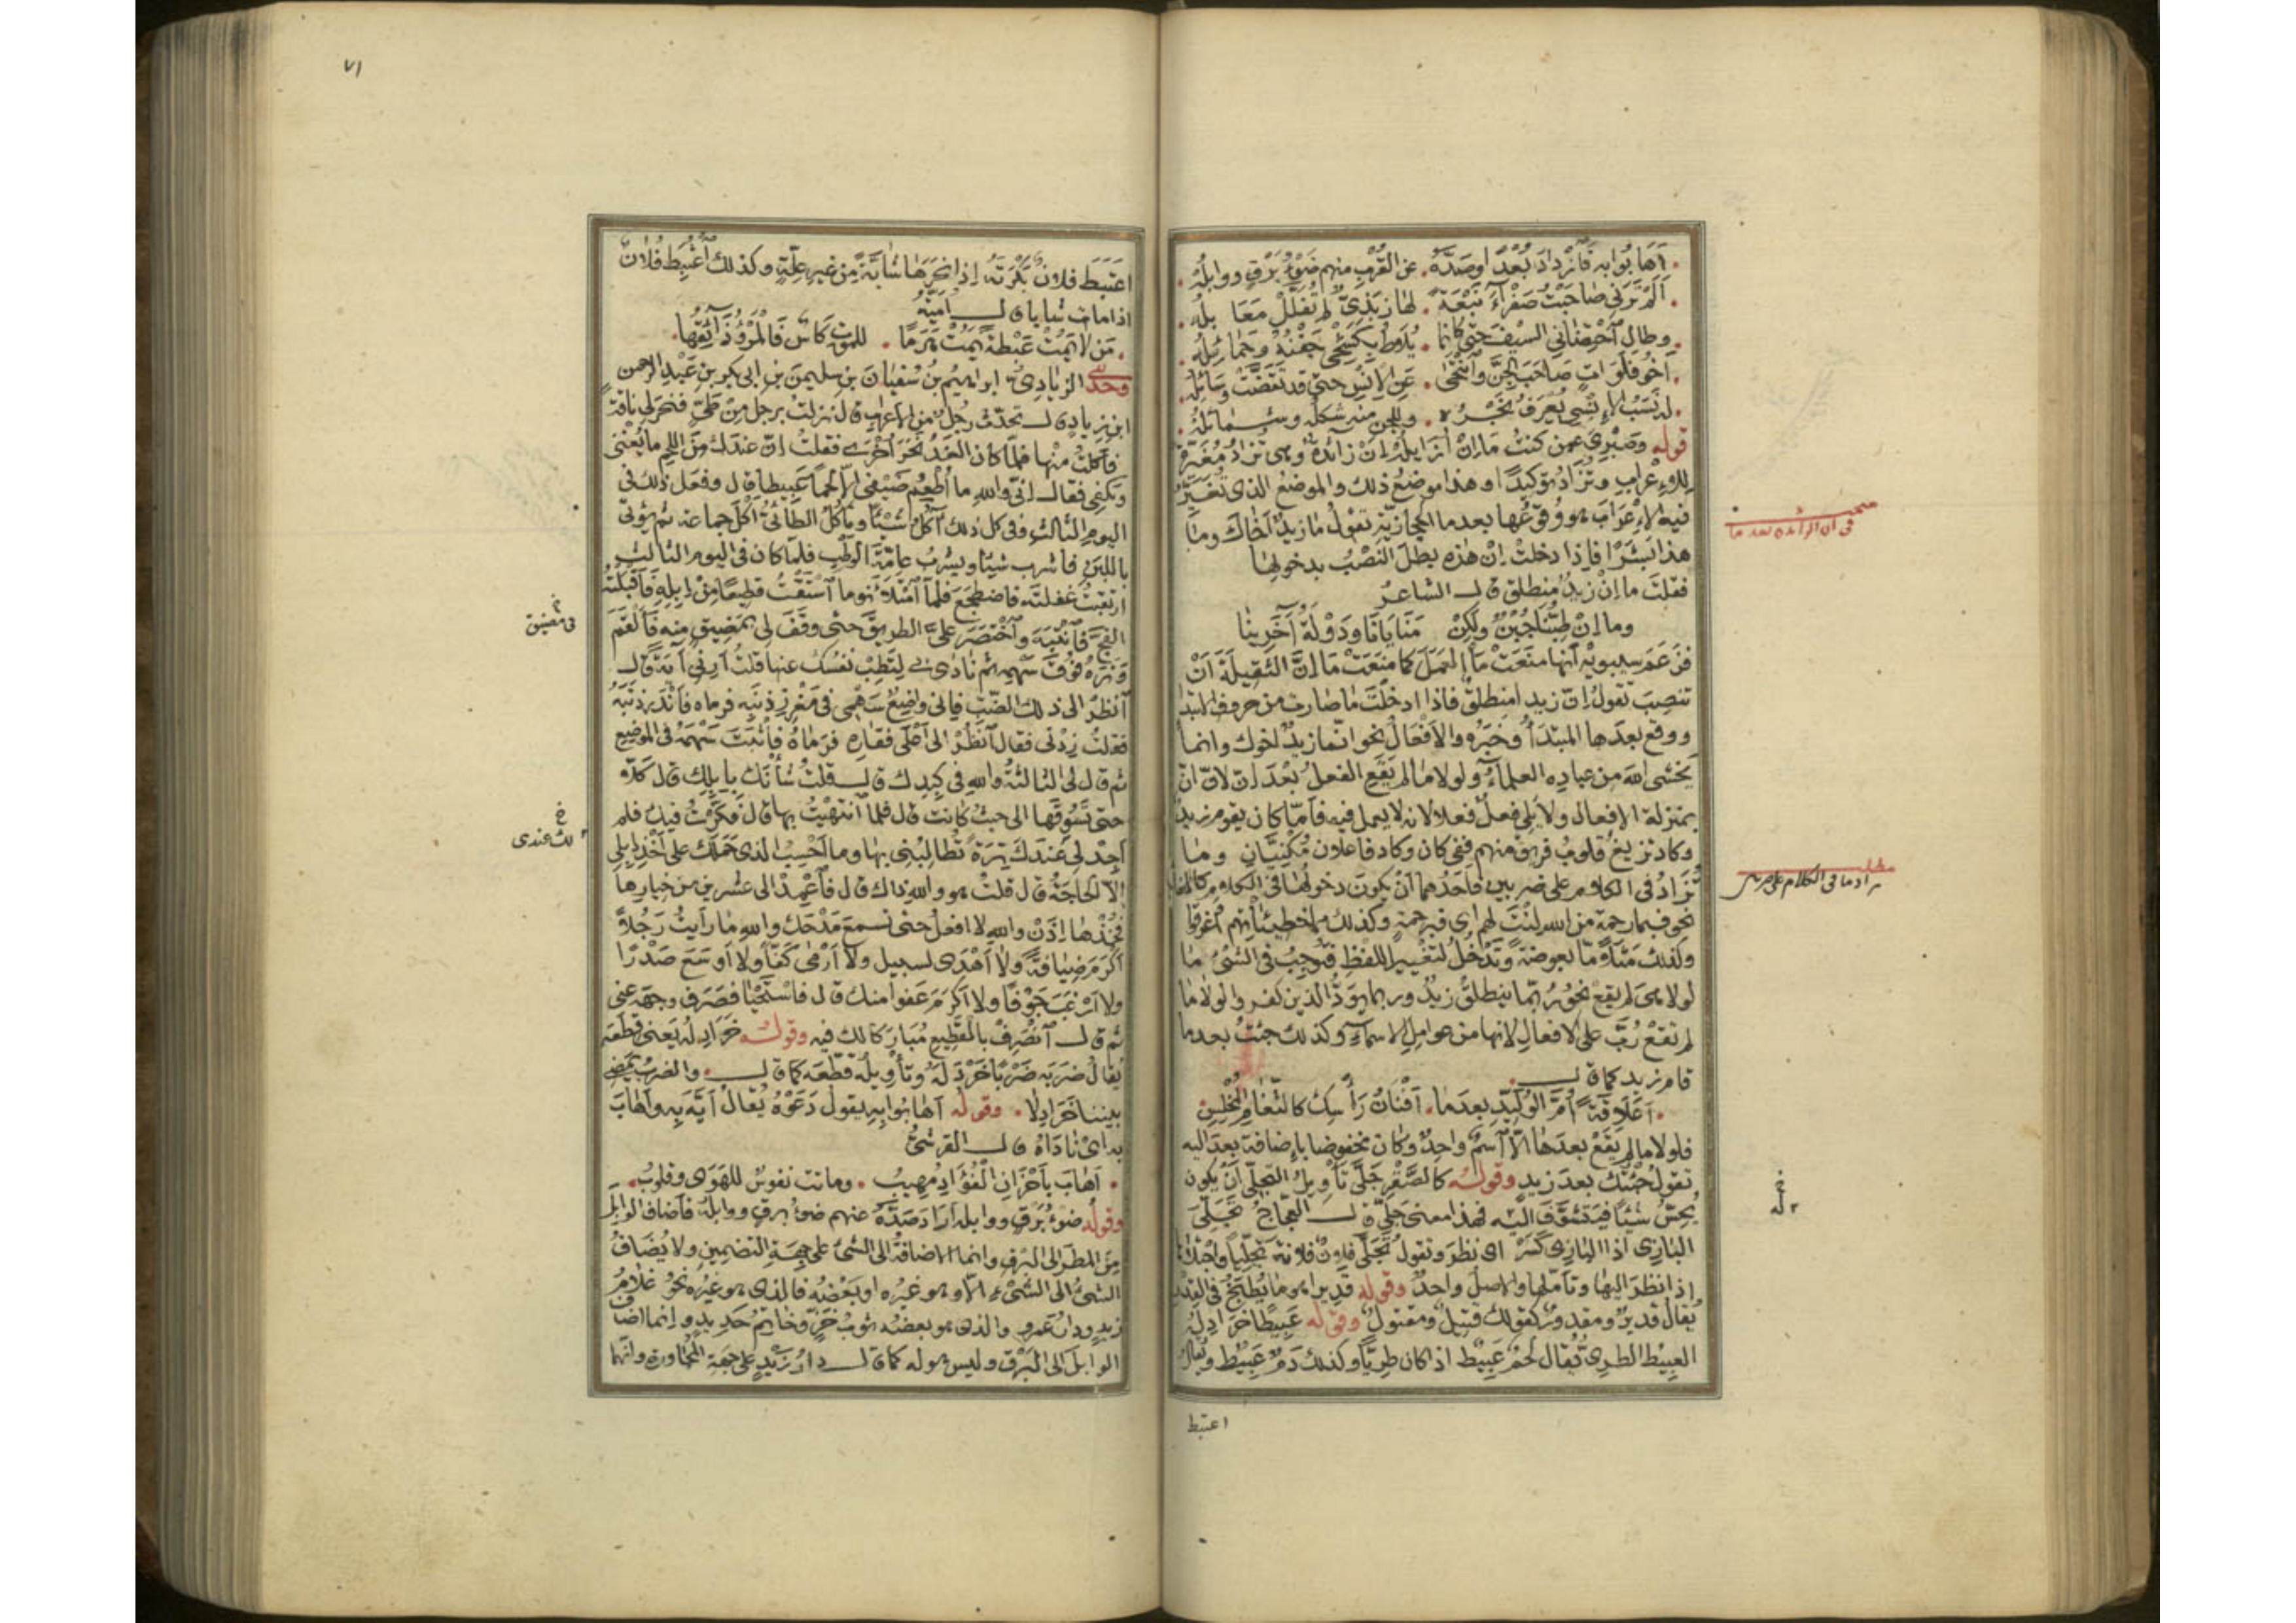 أهابوا به فازداد بعدا وصده . عن القرب منهم ضوء برق ووابله
ألم ترني صاحبت صفراء نبعة . لها ربذي لم تفلل معابله
وطال احتضاني السيف حتى كأنما . يلاط بكشحي جفنه وحمائله
أخو فلوات صاحب الجن وانتحى . عن الإنس حتى قد تقضت وسائله
له نسب الإنسي يعرف نجره . وللجن منه شكله وشمائله
قوله وصبري عمن كنت ما إن أزايله إن زائدة وهي تزاد مغيرة
للإعراب وتزاد توكيدا وهذا موضع ذلك والموضع الذي تغير
فيه الإعراب هو وقوعها بعد ما الحجازية تقول ما زيد أخاك وما
هذا بشرا فإذا دخلت إن هذه بطل النصب بدخولها
فقلت ما إن زيد منطلق قال الشاعر
وما إن طبنا جبن ولكن منايانا ودولة آخرينا
فزعم سيبويه أنها منعت ما العمل كما منعت ما إن الثقيلة أن
تنصب تقول إن زيدا منطلق فإذا ادخلت ما صارت من حروف الابتدا
ووقع بعدها المبتدأ وخبره والأفعال نحو إنما زيد أخوك وإنما
يخشى الله من عباده العلماء ولولا ما لم يقع الفعل بعد إن لأن إن
بمنزلة الأفعال ولا يلي فعل فعلا لأنه لا يعمل فيه فأما كان يقوم زيد
وكاد تزيغ قلوب فريق منهم ففي كان وكاد فاعلان مكنيان وما
تزاد في الكلام على ضربين فأحدهما أن يكون دخولها في الكلام كإلغائها
نحو فبما رحمة من الله لنت لهم أي فبرحمة وكذلك مما خطيئاتهم أغرقوا
وكذلك مثلا ما بعوضة وتدخل لتغيير اللفظ فتوجب في الشيء ما
لولا هي لم يقع نحو ربما ينطلق زيد وربما يود الذين كفروا ولولا ما
لم تقع رب على الأفعال لأنها من عوامل الأسماء وكذلك جئت بعدما
قام زيد كما قال
. أعلاقة أم الوليد بعدما . أفنان رأسك كالثغام المخلس
فلولا ما لم يقع بعدها إلا اسم واحد وكان مخفوضا بإضافة بعد إليه
تقول جئتك بعد زيد وقوله كالصقر جلى تأويل التجلي أن يكون
يحس شيئا فيتشوف إليه فهذا معنى جلى قال العجاج تجلي
البازي اذا البازي كسر أي نظر وتقول تجلى فلان فلانة تجليا واجتلاها
إذا نظر إليها وتأملها والأصل واحد وقوله قديرا هو ما يطبخ في القدر
يقال قدير ومقدور كقولك قتيل ومقتول وقوله عبيطا خرادله
العبيط الطري يقال لحم عبيط اذا كان طريا وكذلك دم عبيط ويقال
اعتبط
في أن الزائدة بعد ما
مطلب
تزاد ما في الكلام على ضربين
خ
له
٧١
اعتبط فلان بكرته إذا نحرها شابة من غير علة وكذلك اعتبط فلان
اذا مات شابا قال أمية
. من لا يمت عبطة يمت هرما . للموت كأس فالمرء ذائقها
وحدثني الزيادي ابراهيم بن سفيان بن سليمن بن ابي بكر بن عبد الرحمن
ابن زياد قال تحدث رجل من الأعراب قال نزلت برجل من طيء فنحر لي ناقة
فأكلت منها فلما كان الغد نحر أخرى فقلت إن عندك من اللحم ما يغني
ويكفي فقال إني والله ما أطعم ضيفي إلا لحما عبيطا قال وفعل ذلك في
اليوم الثالث وفي كل ذلك آكل شيئا ويأكل الطائي أكل جماعة ثم نؤتى
باللبن فأشرب شيئا ويشرب عامة الوطب فلما كان في اليوم الثالث
ارتقبت غفلته فاضطجع فلما امتلأ نوما استقت قطيعا من إبله فأقبلته
الفج فانتبه واختصر علي الطريق حتى وقف لي بمضيق منه فألقم
وتره فوق سهمه ثم نادى لي لتطب نفسك عنها قلت أرني آية قال
انظر الى ذلك الضب فإني واضع سهمي في مغرز ذنبه فرماه فأندر ذنبه
فقلت زدني فقال انظر الى أعلى فقاره فرماه فأثبت سهمه في الموضع
ثم قال لي الثالثة والله في كبدك قال قلت شأنك بإبلك قال كلا
حتى تسوقها الى حيث كانت قال فلما انتهيت بها قال فكرت فيك فلم
أجد لي عندك ترة تطالبني بها وما أحسب الذي حملك على أخذ إبلي
إلا الحاجة قال قلت هو والله ذاك قال فاعمد الى عشرين من خيارها
فخذها إذن والله لا افعل حتى تسمع مدحك والله ما رأيت رجلا
أكرم ضيافة ولا أهدى لسبيل ولا أرمى كفا ولا أوسع صدرا
ولا أرغب جوفا ولا أكرم عفوا منك قال فاستحيا فصرف وجهه عني
ثم قال انصرف بالقطيع مباركا لك فيه وقوله خرادله يعني قطعه
يقال ضربه ضربا خردله وتأويله قطعه كما قال . والضرب يمضي
بيننا خرادلا . وقوله أهابوا به يقول دعوه يقال أيه به وأهاب
به أي ناداه قال القرشي
. أهاب بأحزان الفؤاد مهيب . وماتت نفوس للهوى وقلوب .
وقوله ضوء برق ووابله أراد صده عنهم ضوء برق ووابله فأضاف الوابل
من المطر إلى البرق وانما الاضافة إلى الشيء على جهة التضمين ولا يضاف
الشيء الى الشيء إلا وهو غيره او بعضه فالذي هو غيره نحو غلام
زيد ودار عمرو والذي هو بعضه ثوب خز وخاتم حديد وإنما أضاف
الوابل الى البرق وليس هو له كما قال دار زيد على جهة المجاورة وانما
خ
في مضيق
خ
لك عندي